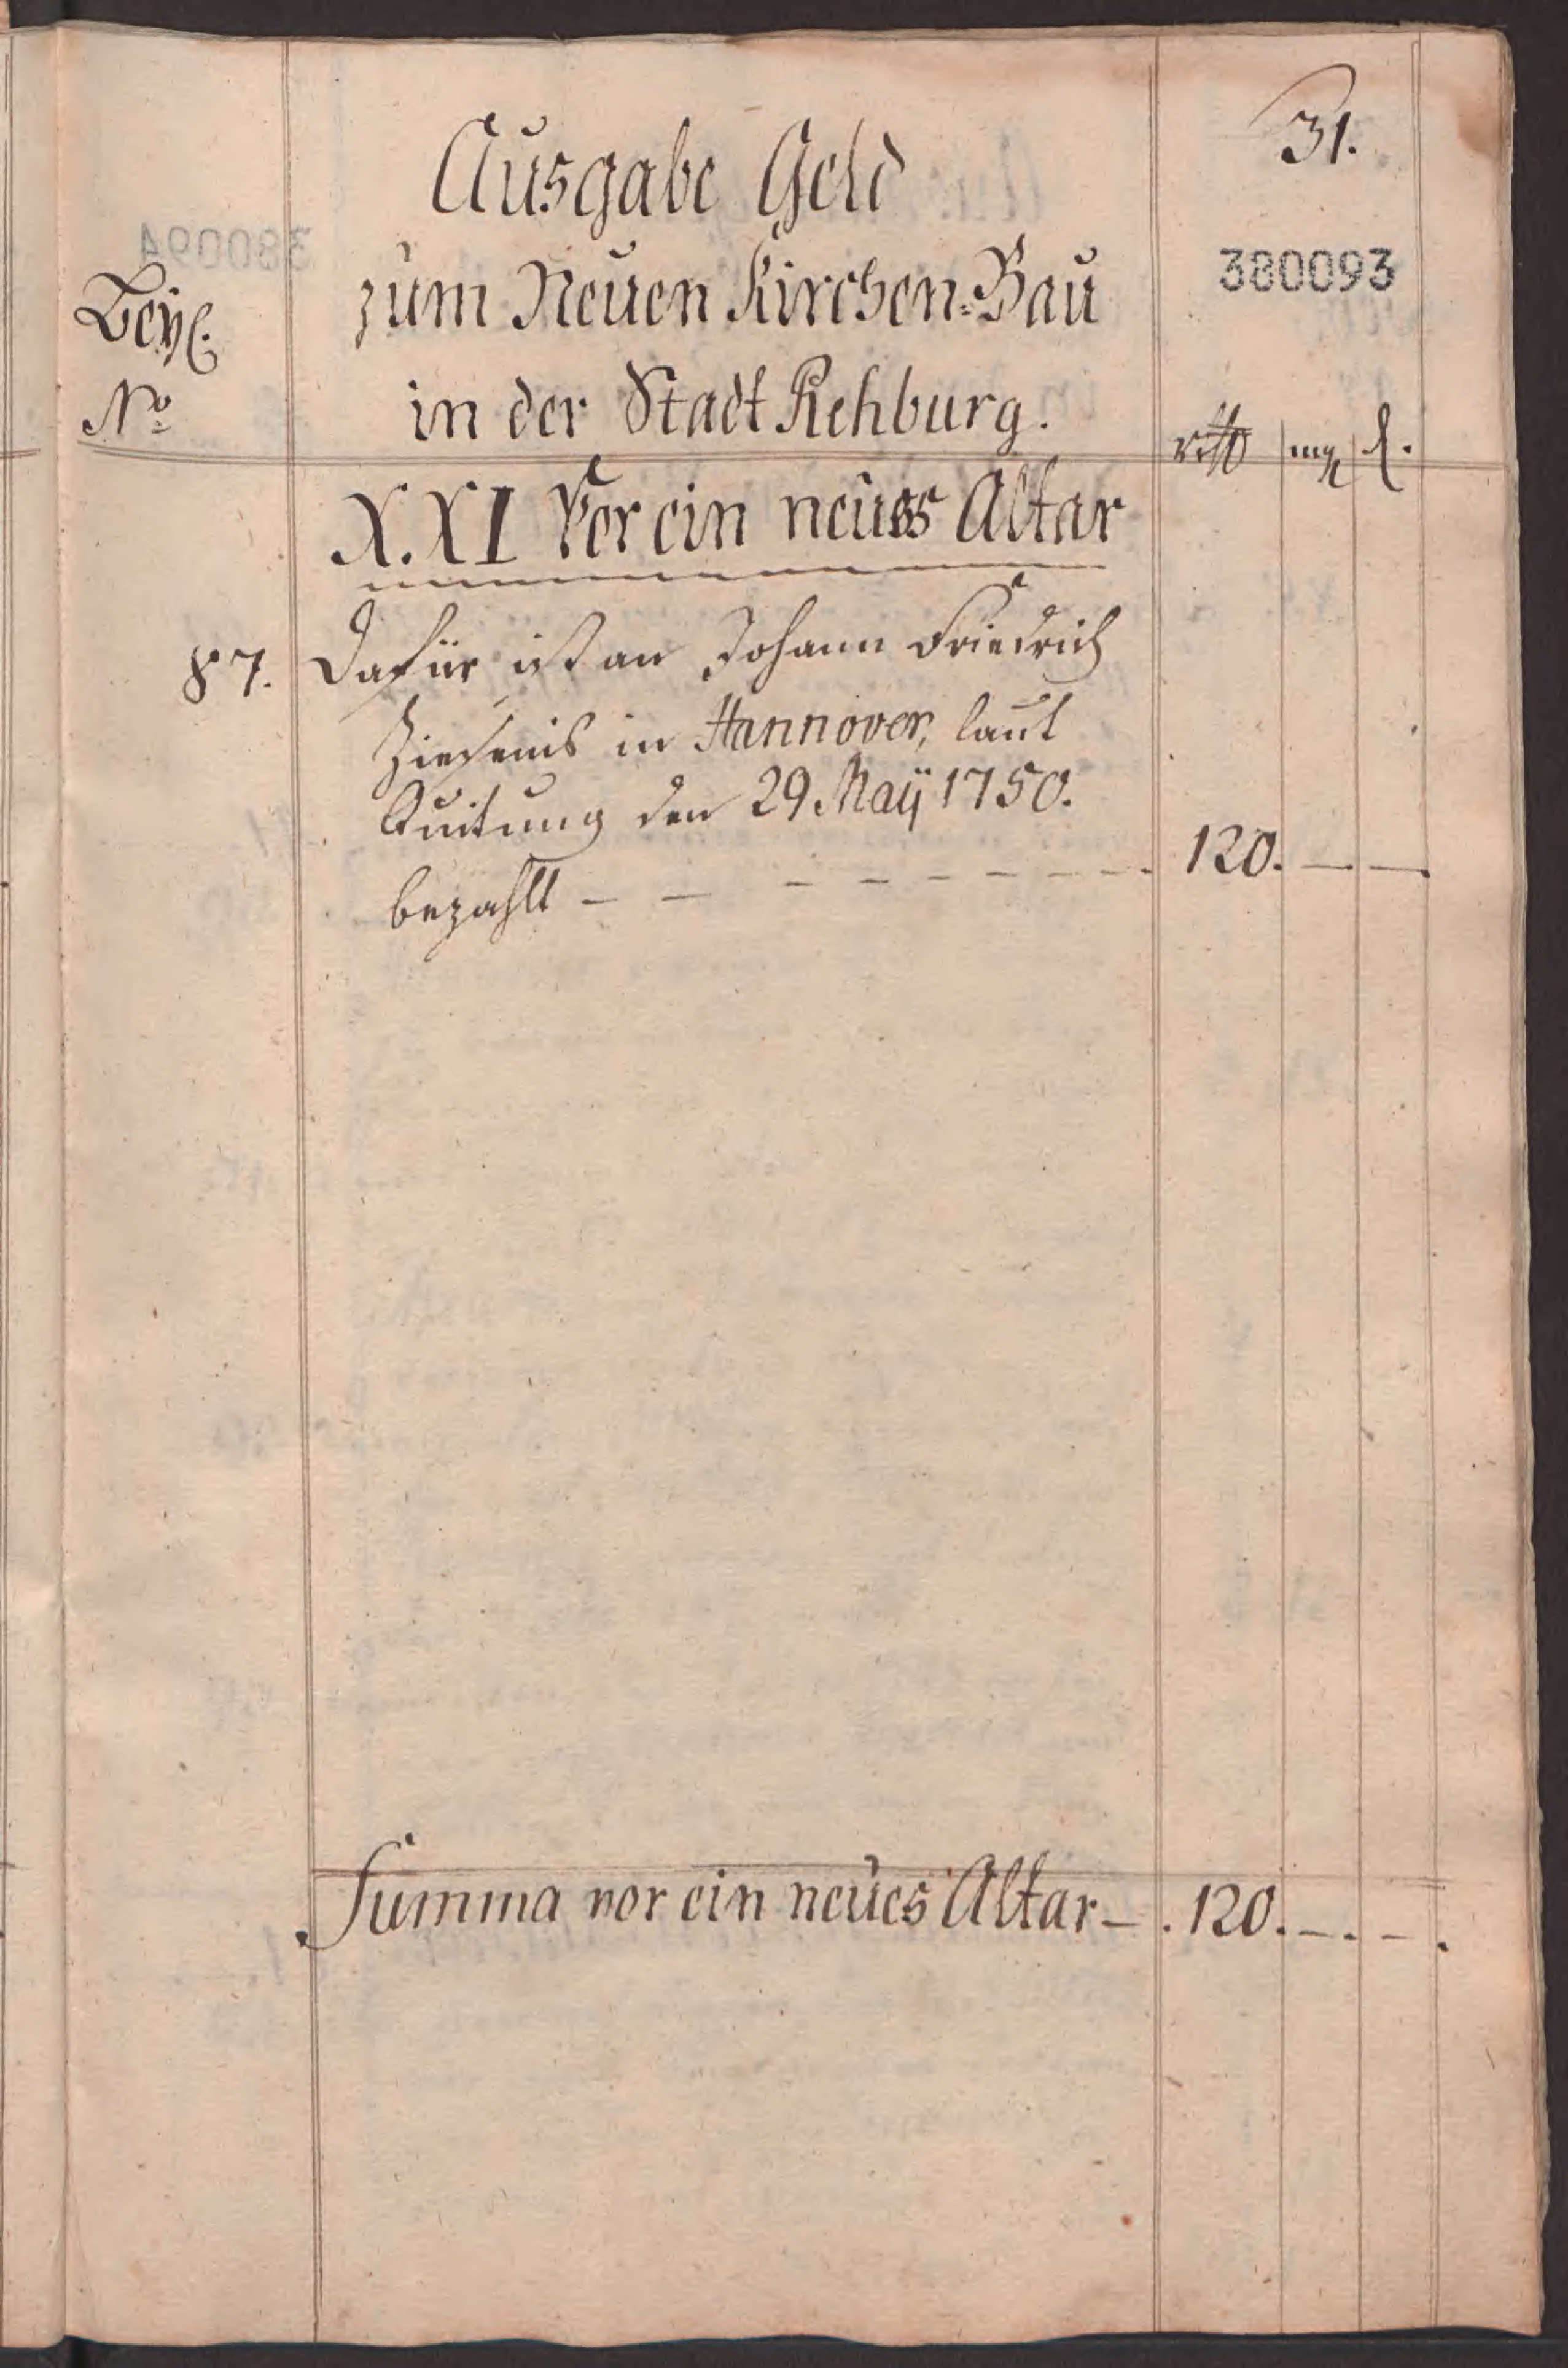 31.
Ausgabe Geld
380093
zum Neuen Kirchen-Bau
Beyl.
in der Stadt Rehburg.
No
rthl mg d.
XXI Vor ein neues Altar
87. Dafür ist an Johann Friedrich
Ziesenis in Hannover, laut
Quitung den 29 Maÿ 1750.
bezahlt - - - - - - - - - 120. — —
Summa vor ein neues Altar - . 120. - . - .